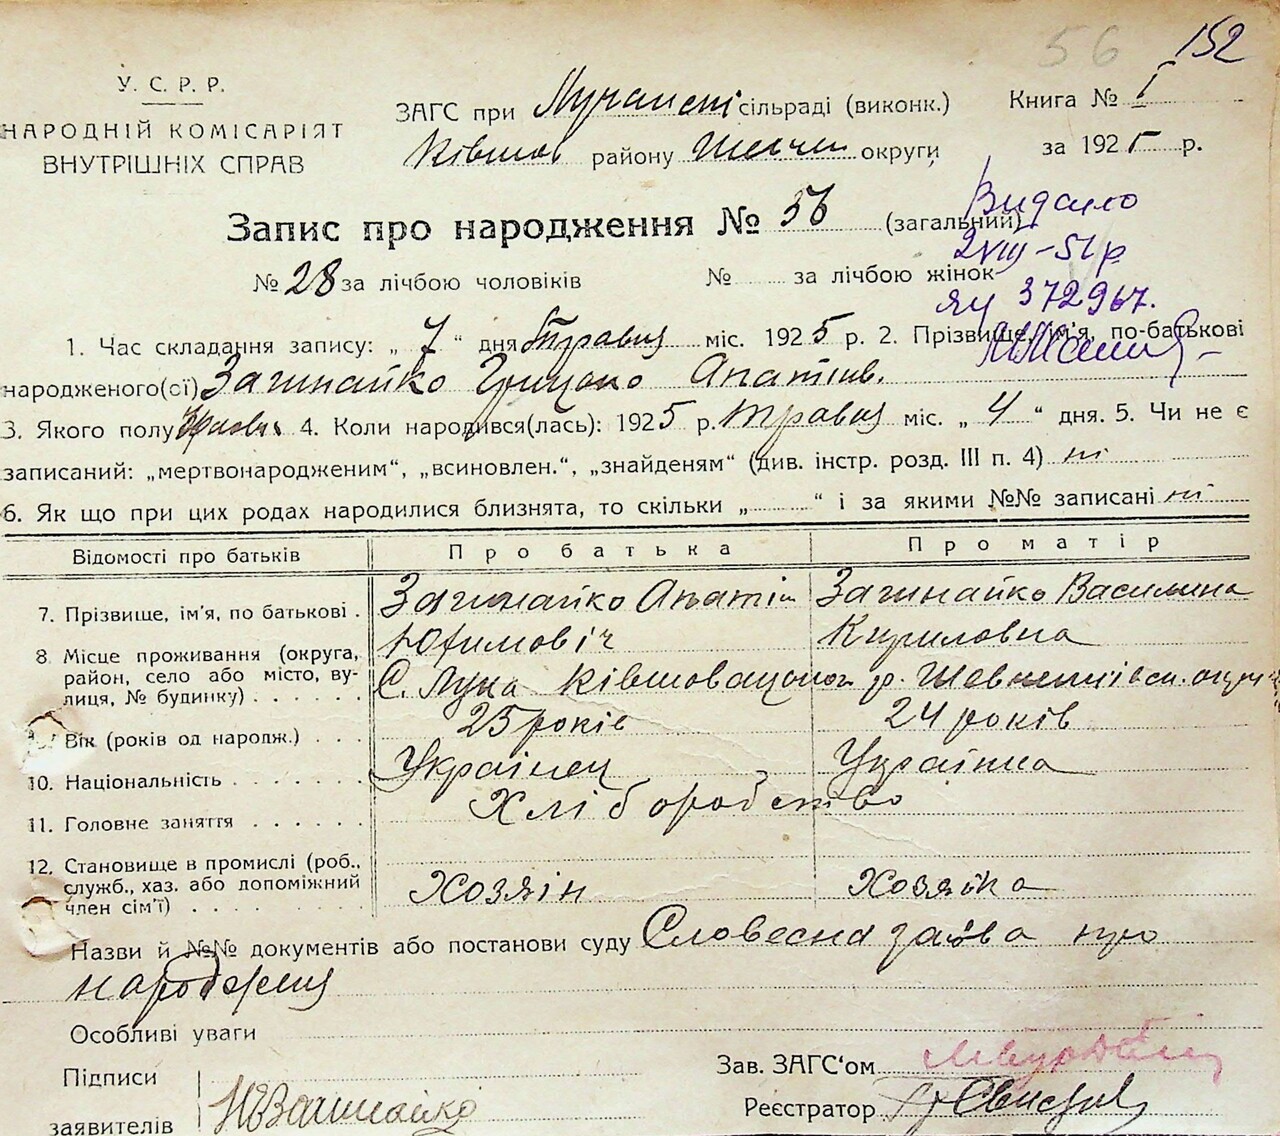 56 152
У. С. Р. Р.
НАРОДНІЙ КОМІСАРІЯТ
ВНУТРІШНІХ СПРАВ
ЗАГС при Лучанскі сільраді (виконк.)
Ківшов району Шевчен округи
Книга № I
за 1925 р.
Запис про народження № 56 (загальний)
№ 28 за лічбою чоловіків № за лічбою жінок
Видано
2 VIII-51 р
ЯЧ 372967.
1. Час складання запису: „ 7 “ дня Травня міс. 1925 р. 2. Прізвище, ім'я, по-батькові
народженого(ої) Загинайко Грицько Опатіїв.
3. Якого полу 4. Коли народився(лась): 1925 р. Травня міс. „ 4 “ дня. 5. Чи не є
записаний: „мертвонародженим“, „всиновлен.“, „знайденям“ (див. інстр. розд. III п. 4) ні
6. Як що при цих родах народилися близнята, то скільки „ “ і за якими №№ записані ні
Відомості про батьків Про батька Про матір
7. Прізвище, ім'я, по батькові . Загинайко Опатій Юхимовіч Загинайко Василина Кириловна
8 Місце проживання (округа,
район, село або місто, ву-
лиця, № будинку) . . . . . С. Лука Ківшовацького р. Шевченківськ. округи
9. Вік (років од народж.) . . . 25 років 24 років
10. Національність . . . . . . . Українец Українка
11. Головне заняття . . . . . . Хліборобство
12. Становище в промислі (роб.,
служб., хаз. або допоміжний
член сім'ї) . . . . . . . . . Хозяін Хозяйка
Назви й №№ документів або постанови суду Словесна заява про
народження
Особливі уваги
Підписи
заявителів Загинайко
Зав. ЗАГС'ом
Реєстратор